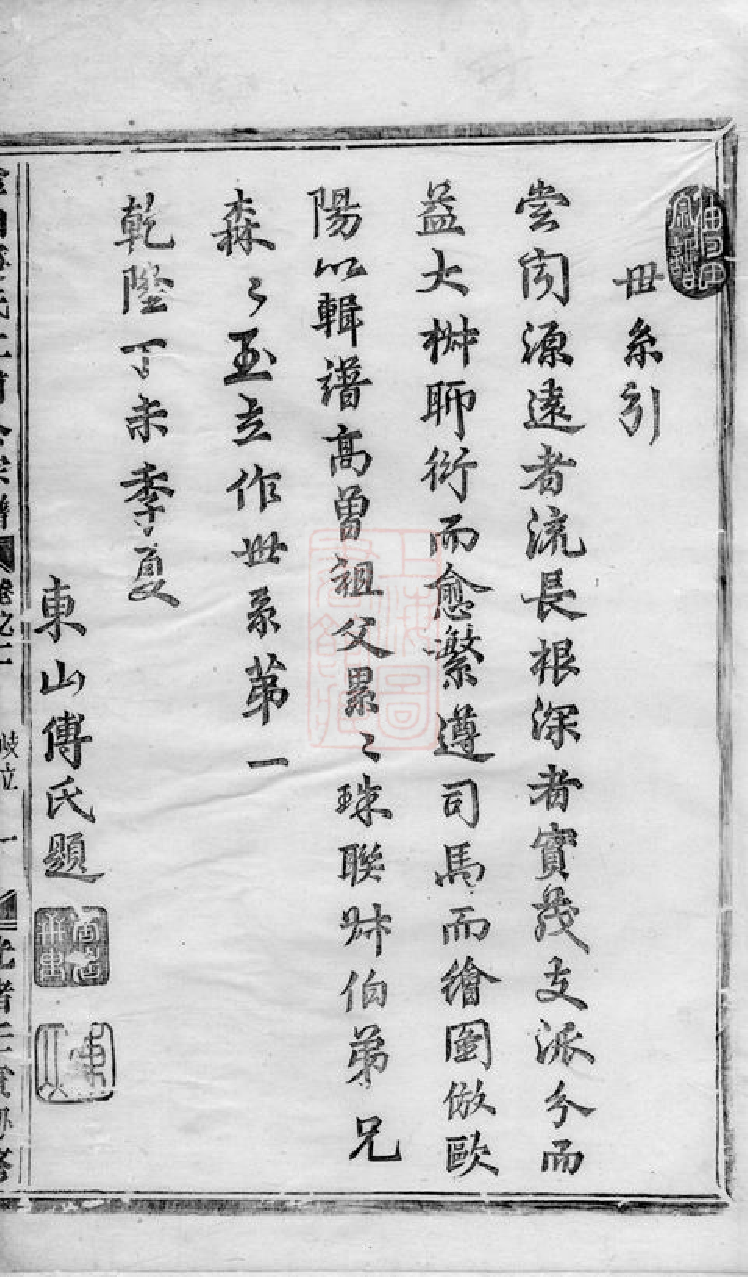 世系引
嘗闻源遠者流長根深者實茂支派分而
益大椒聊衍而愈繁遵司馬而繪图倣歐
陽以輯譜高曾祖父累〻珠聯叔伯弟兄
森〻玉立作世系苐一
乾隆丁未季夏
東山傅氏題
卷之二
岐立
一
光緒壬寅